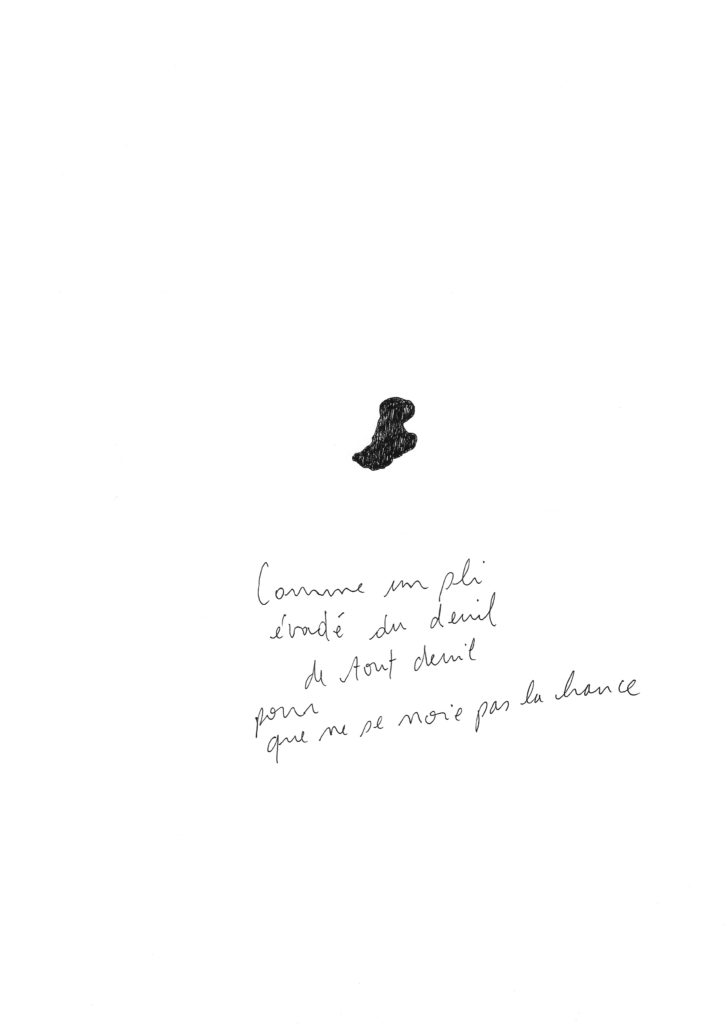 Comme un pli
évadé du deuil
de tout deuil
pour
que ne se noie pas la chance